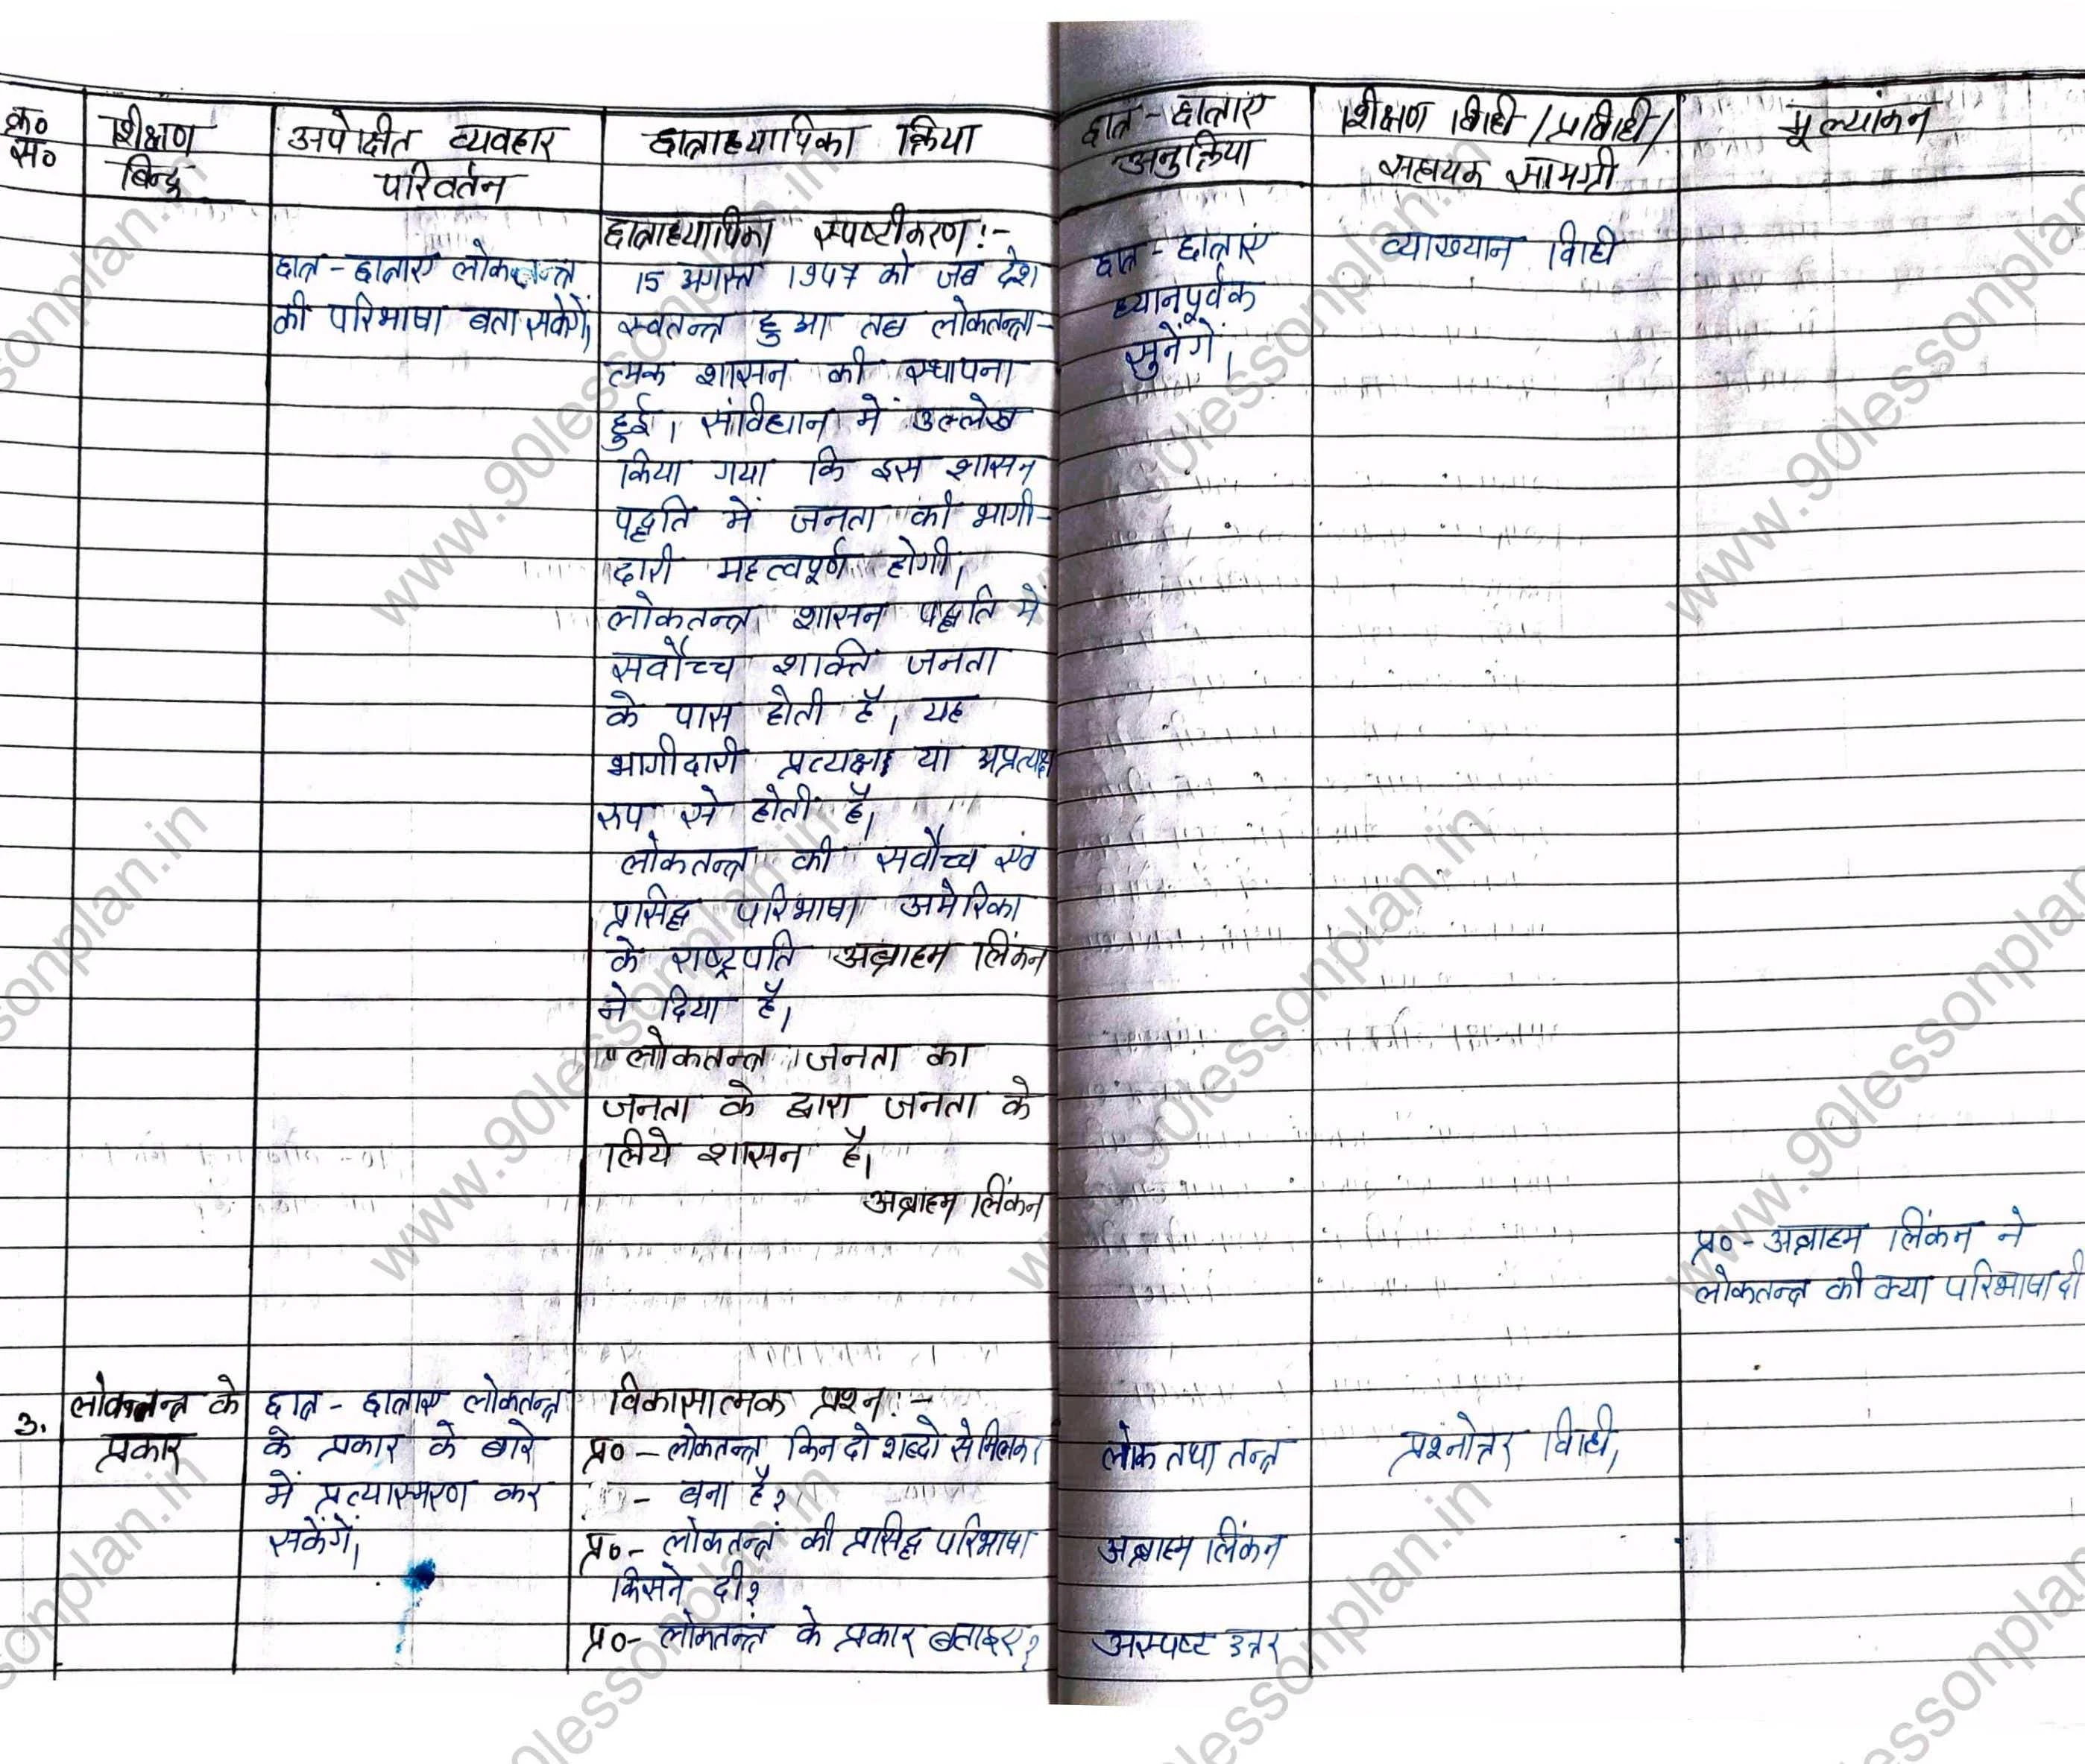 क्र० सं०
शिक्षण
बिन्दु
अपेक्षीत व्यवहार
परिवर्तन
छात्राध्यापिका क्रिया
छात्र - छात्राएं
अनुक्रिया
शिक्षण विधी / प्रविधी /
सहायक सामग्री
मूल्यांकन
छात्र - छात्राएं लोकतन्त्र
की परिभाषा बता सकेगें।
छात्राध्यापिका स्पष्टीकरण :-
15 अगस्त 1947 को जब देश
स्वतन्त्र हुआ तब लोकतन्त्रा-
त्मक शासन की स्थापना
हुई। संविधान में उल्लेख
किया गया कि इस शासन
पद्धति में जनता की भागी-
दारी महत्वपूर्ण होगी।
लोकतन्त्र शासन पद्धति में
सर्वोच्च शक्ति जनता
के पास होती है। यह
भागीदारी प्रत्यक्ष या अप्रत्यक्ष
रुप से होती है।
लोकतन्त्र की सर्वोच्च एवं
प्रसिद्ध परिभाषा अमेरिका
के राष्ट्रपति अब्राहम लिंकन
ने दिया है।
"लोकतन्त्र जनता का
जनता के द्वारा जनता के
लिये शासन है।
अब्राहम लिंकन
छात्र - छात्राएं
ध्यानपूर्वक
सुनेंगें।
व्याख्यान विधी
प्र० - अब्राहम लिंकन ने
लोकतन्त्र की क्या परिभाषा दी
3.
लोकतन्त्र के
प्रकार
छात्र - छात्राएं लोकतन्त्र
के प्रकार के बारे
में प्रत्यास्मरण कर
सकेंगें।
विकासात्मक प्रश्न :-
प्र० - लोकतन्त्र किन दो शब्दो से मिलकर
- बना है?
प्र० - लोकतन्त्रं की प्रसिद्ध परिभाषा
किसने दी?
प्र० - लोकतन्त्रं के प्रकार बताइए?
लोक तथा तन्त्र
अब्राहम लिंकन
अस्पष्ट उत्तर
प्रश्नोत्तर विधी,
www.90lessonplan.in